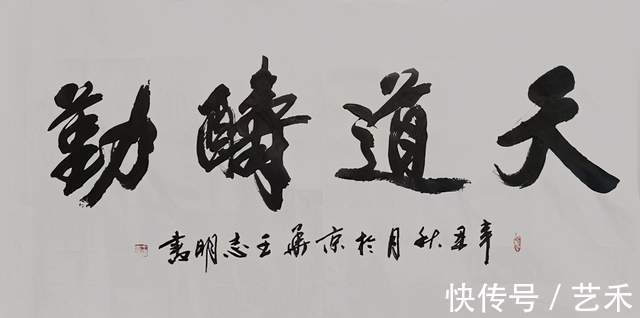 天道醻勤
辛丑秋月於京華王志明書
快传号 / 艺禾